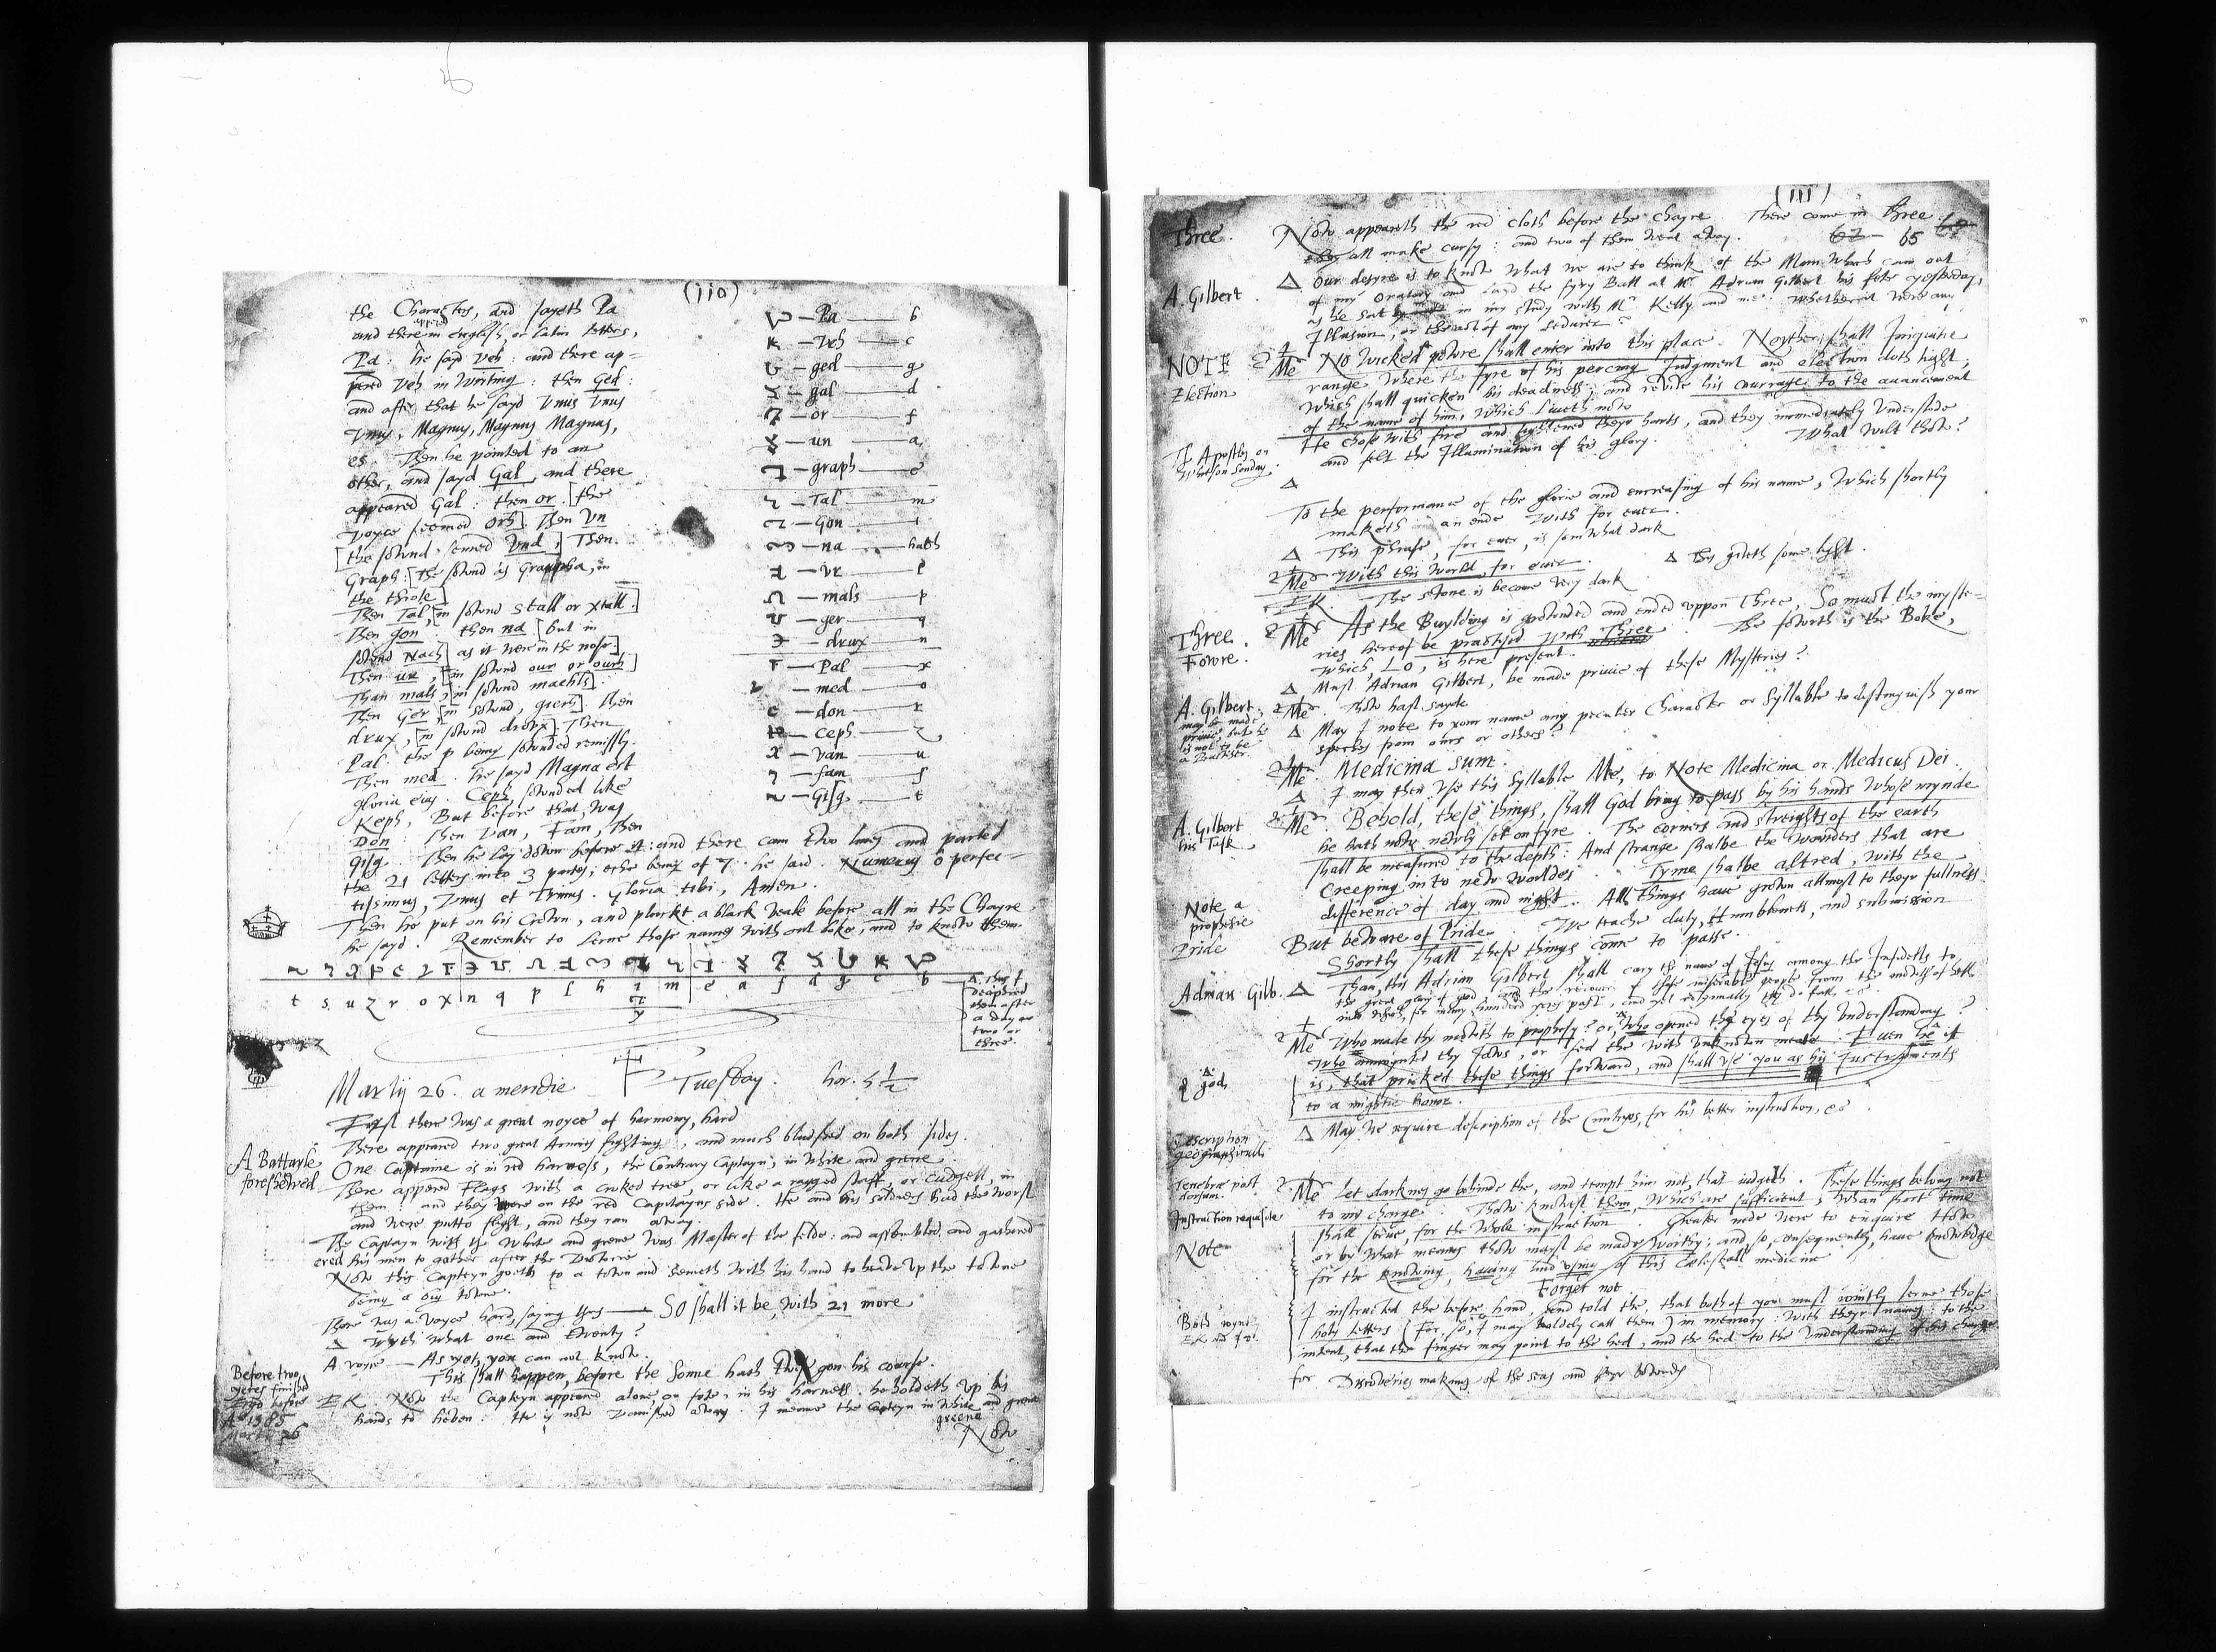 (110)
the Characters, and sayeth Pa
and there appered in english, or latin letters,
Pa: he sayd veh: and there ap=
pered veh in writing: then Ged:
and after that he sayd Vnus Vnus
Vnus, Magnus, Magnus Magnus,
es. Then he pointed to an
other, and sayd Gal, and there
appeared Gal: then or. [the
voyce seemed orh]. Then Vn
[the sownd semed Vnd,] Then.
Graph: [the sownd as Grappha, in
the throte]
Then Tal, [in sownd stall or xtall.]
Then gon. then na [but in
sownd Nach as it were in the nose]
Then ur, [in sownd our or ourh]
Than mals, [in sownd machls]
Then Ger, [in sownd, gierh]. Then
drux, [in sownd drovx]. Then
Pal. the p being sownded remissly.
Then med. he sayd Magna est
gloria eius. Ceph, sownded like
Keph, But before that, was
Don: Then Van, Fam, Then
Gisg.
Pa b
veh c
ged g
gal d
or f
un a
graph e
Tal m
Gon i
na hath
vr l
mals p
ger q
drux n
Pal x
med o
don r
ceph z
van u
fam s
Gisg. t
Then he lay down before it: and there cam two lines and parted
the 21 letters into 3 partes, eche being of 7. he said. Numerus o perfec=
tissimus, Vnus et Trinus. gloria tibi, Amen.
Then he put on his Crown, and pluckt a black veale before all in the Chayre.
he sayd. Remember to lerne those names with out boke, and to know them.
t s u z r o x n q p l h i m e a f d g c b
y
Δ. This I
deciphred
then after
a day or
two or
three.
Martij 26. a meridie Tuesday. hor. 5 1/2
First there was a great noyce of harmony, hard
There appeared two great Armies fighting, and much bludshed on both sides.
A Battayle
foreshewed
One Captaine is in red harness, the Contrary Captayn; in white and grene.
There appered Flags with a croked tree, or like a ragged staff, or cudgell, in
them: and they were on the red Captayns side. He and his soldiers had the worst
and were putto flight, and they ran away.
The Captayn with the white and grene was Master of the felde: and assembled and gathered
his men to gather after the Victorie.
Now this Captayn goeth to a town and semeth with his hand to heave up the towne
being a big towne.
There was a voyce hard, saying thus — So shall it be, with 21 more
Δ Wyth what one and twenty?
A voyce — As yet, you can not know.
This shall happen, before the Sonne hath twise gon his course.
Before two
yeres finished
Ergo before
A° 1585
March 26
E K. Now the Captayn appeared alone, on fote, in his harness. he holdeth up his
hands to heven: He is now vanished away. I meane the Captayn in white and grene
greene
Now
(111)
Three.
Now appeareth the red cloth before the chayre. There come in three
they all make cursy: and two of them went away. 65
A. Gilbert
Δ Our desyre is to know what we are to think of the Man which cam out
of my Oratory and layd the fyry Ball at Mr Adrian Gilbert his fete yesterday,
as he sat in my study with Mr Kelly and me: whether it were any
Illusion, or the act of any seducer?
NOTE
Election
Me No wicked powre shall enter into this place. Neyther shall Iniquitie
range where the fyre of his percing Iudgment and election doth light;
which shall quicken his deadness, and revive his courage to the auancement
of the name of him, which liueth now
He chose with fire and lightened theyr harts, and they immediately Understode
and felt the Illumination of his glory. What wilt thow?
The Apostles on
Whitson Sonday.
Δ
To the performance of the glorie and encreasing of his name, which shortly
maketh an ende with for euer.
Δ This phrase, for euer, is somwhat dark
Me With this world, for euer. Δ This giveth some light.
E K. — The stone is become very dark
Three
Fowre.
Me As the Buylding is grownded and ended vppon Three, So must the myste=
ries hereof be practised. With Three. The fowrth is the Boke,
Which, Lo, is here present.
Δ Must Adrian Gilbert, be made privie of these Mysteries?
A. Gilbert
may be made
privie, but he
is not to be
a Practiser.
Me. Thow hast sayde
Δ May I note to your name any peculier Character or Syllable to distinguish your
speches from ours or others?
Me. Medicina sum.
Δ I may then vse this Syllable Me, to Note Medicina or Medicus Dei.
A. Gilbert
his Task
Me. Behold, these things, shall God bring to pass by his hands whose mynde
he hath now newly set on fyre. The corners and streights of the earth
shall be measured to the depth: And strange shalbe the wonders that are
Creeping in to new worldes. Tyme shalbe altred, with the
difference of day and night. All things haue grown allmost to theyr fullness
Note a
prophesie
Pride
But beware of Pride. We teache duty, Humblenes, and submission
Shortly shall these things come to passe.
Adrian Gilb.
Δ Than, this Adrian Gilbert shall cary the name of Jesus among the Infidells to
the great glory of god, and the recovery of those miserable people from the mowth of hell
into which, for many hundred yeres past, and yet contynually they do fall, &c.
Me Who made thy mowth to prophesy? or, who opened the eyes of thy Understanding?
Who annoynted thy Jaws, or fed the with unknown meate. Euen he it
God
is, that pricked these things forward, and shall vse you as his Instruments
to a mightie honor.
Description
geographicall.
Δ May we require description of the Cuntryes, for his better instruction, &c.
Tenebræ post
dorsum.
Instruction requisite
Note
Me Let darknes go behinde the, and tempt him not, that iudgeth. These things belong not
to my charge. Thow knowest them, which are sufficient, whan short time
shall serve, for the whole instruction. Greater nede were to enquire How
or by what meanes thow mayst be made worthy: and, so, consequently, haue knowledge
for the knowing, having and vsing of this cælestiall medicine
Forget not
I instructed the before hand, and told the, that both of you must iointly lerne those
holy letters (For, so, I may boldely call them) in memory: with theyr names: to the
intent, that the finger may point to the hed, and the hed to the Understanding of his charge
for Discoveries making of the seas and theyr bownds